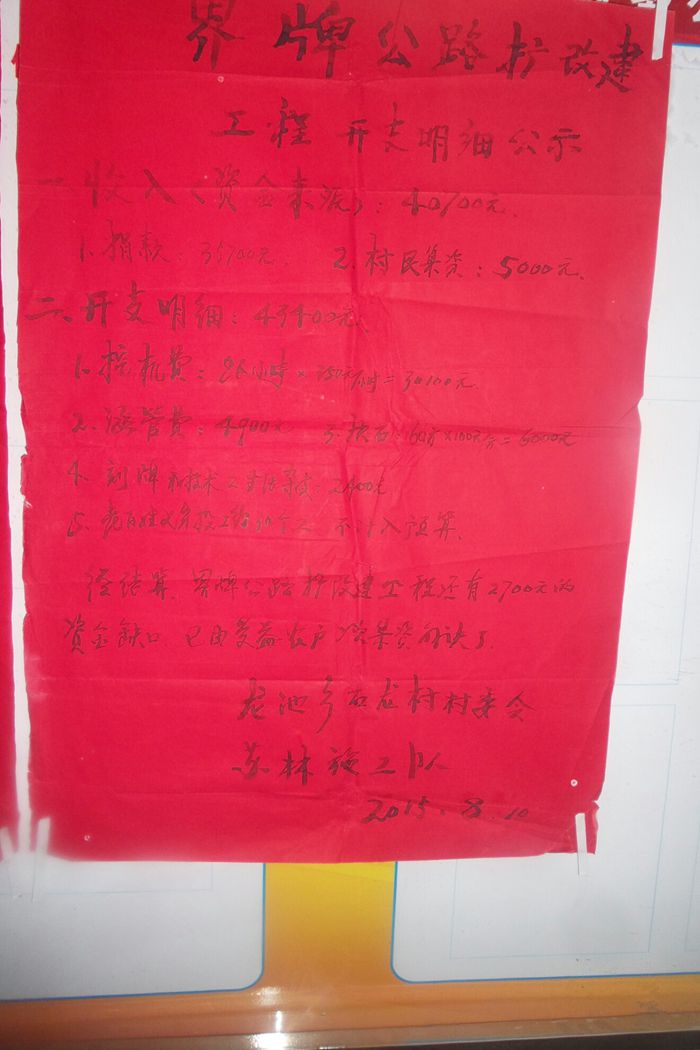 界牌公路扩改建
工程开支明细公示
一收入(资金来源):40700元.
1.捐款:35700元. 2.村民集资:5000元.
二、开支明细:43400元.
1.挖机费:86小时×350元/小时=30100元.
2.涵管费:4900元 3.块石:60方×100元/方=6000元
4.刻牌和技术工生活杂支:2400元
5.老百姓义务投工 不计入预算.
经结算,界牌公路扩改建工程还有2700元的
资金缺口,已由受益农户 集资 了.
龙池乡石龙村村委会
苏林施工队
2015.8.10